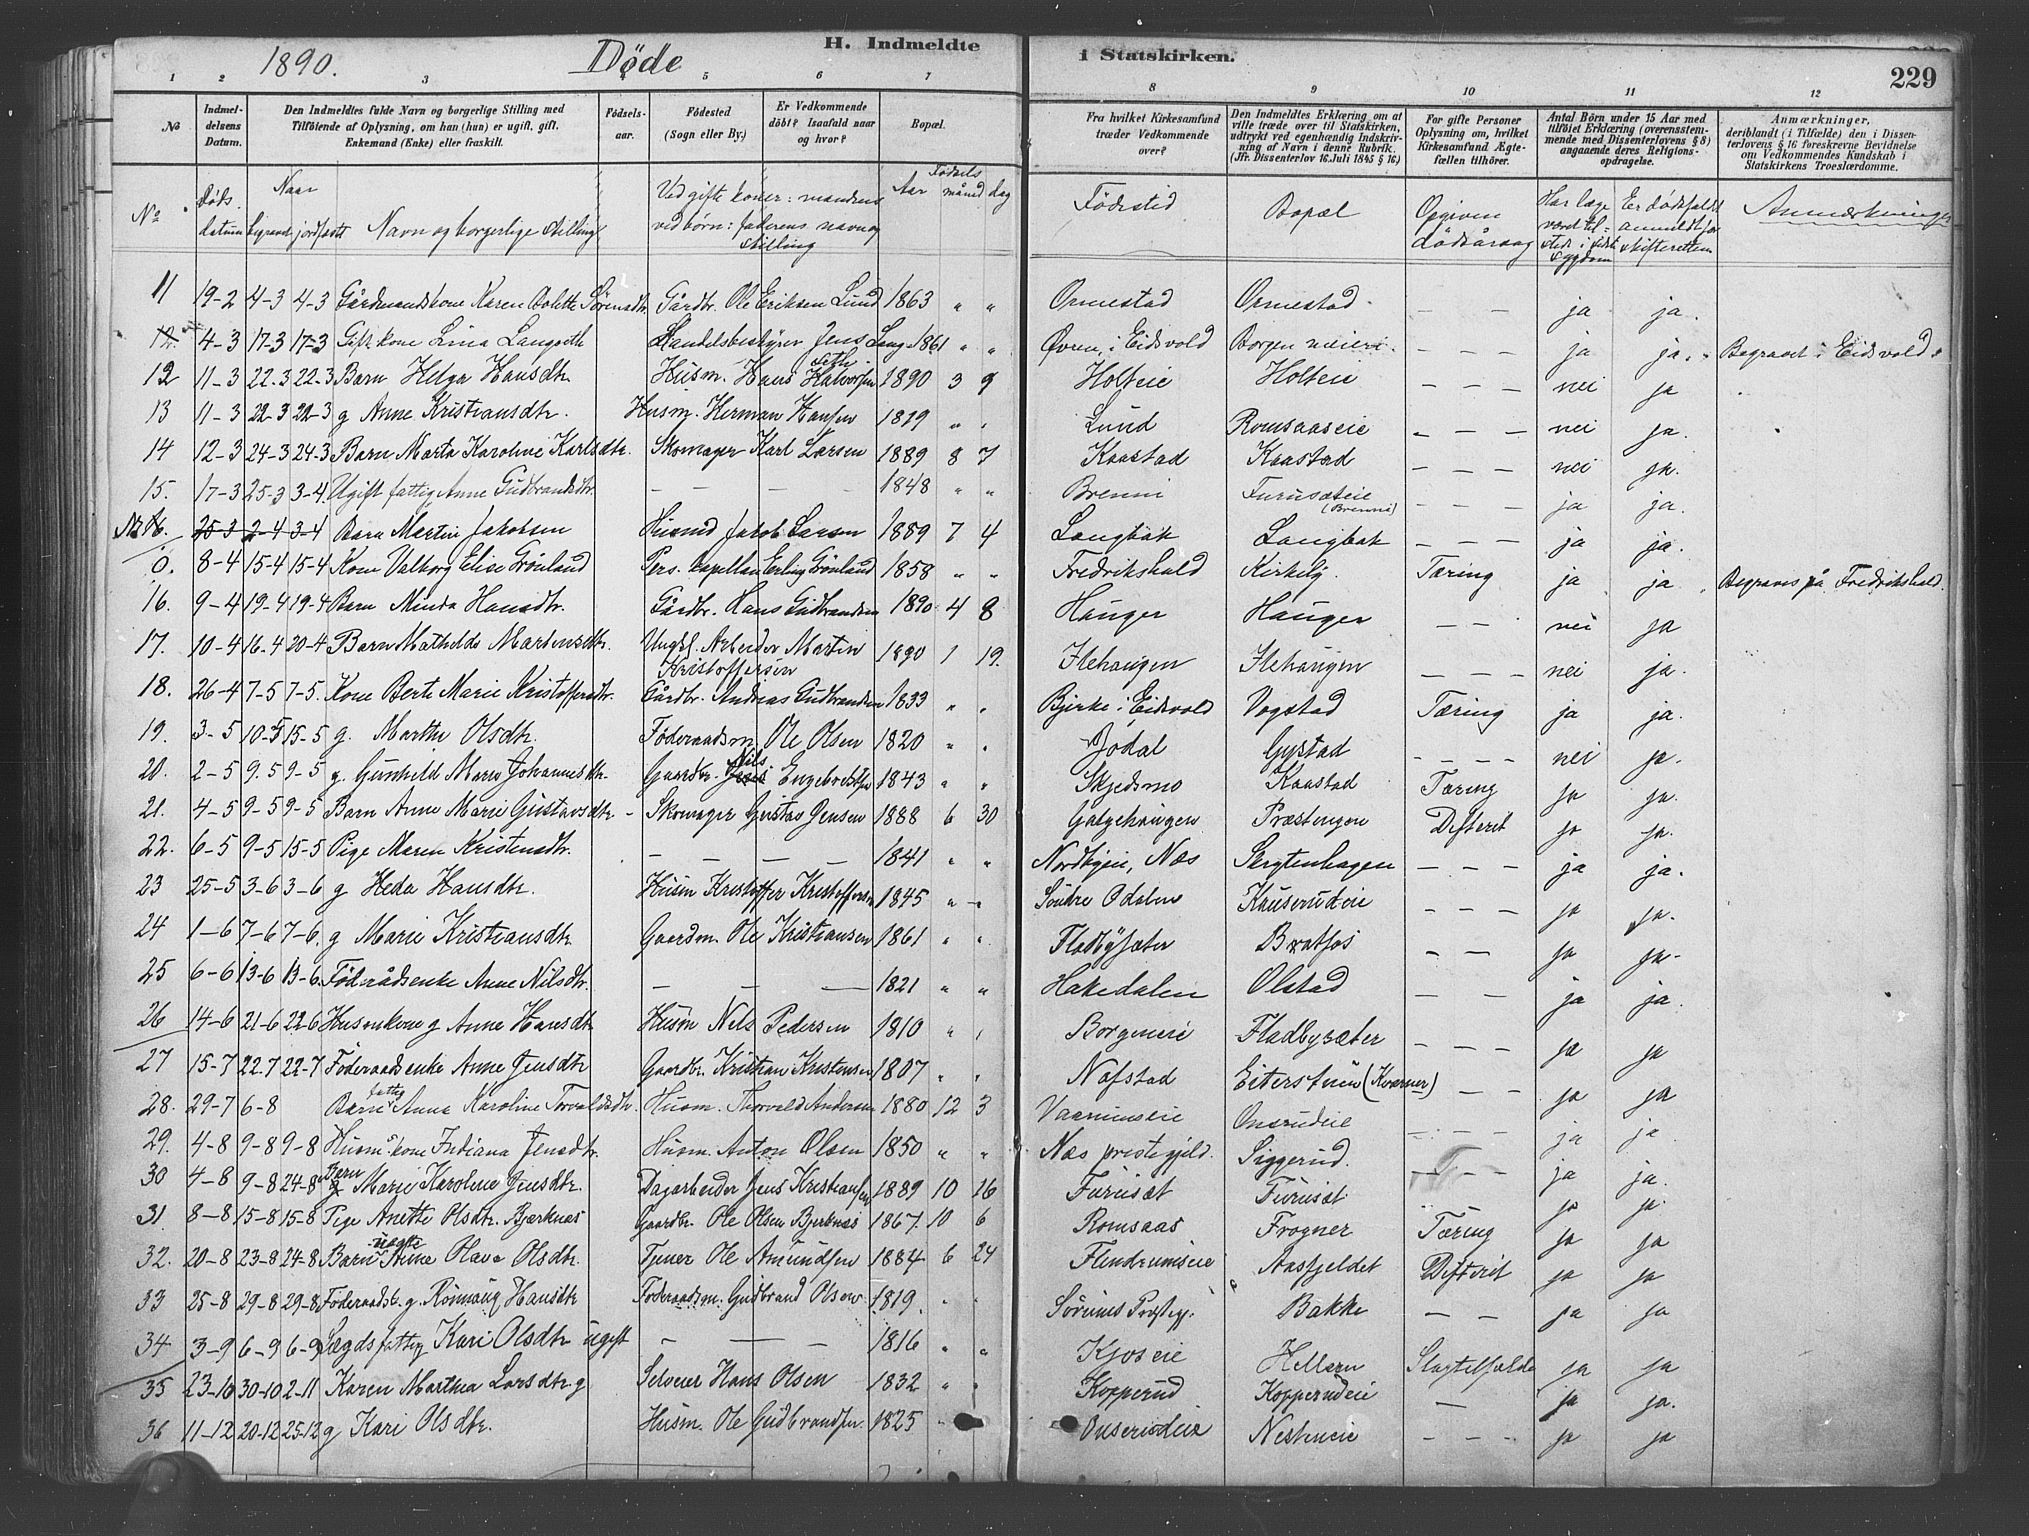 1890.
Døde
H. Indmeldte
i Statskirken.
229
1 2 3 5 6 7 8 9 10 11 12
No
Indmeldelsens Datum.
Den Indmeldtes fulde Navn og borgerlige Stilling med Tilføiende af Oplysning, om han (hun) er ugift, gift, Enkemand (Enke) eller fraskilt.
Fødselsaar.
Fødested (Sogn eller By.)
Er Vedkommende døbt? Isaafald naar og hvor?
Bopæl.
Fra hvilket Kirkesamfund træder Vedkommende over?
Den Indmeldtes Erklæring om at ville træde over til Statskirken, udtrykt ved egenhændig Indskrivning af Navn i denne Rubrik. (Jfr. Dissenterlov 16 Juli 1845 § 16)
For gifte Personer Oplysning om, hvilket Kirkesamfund Ægtefællen tilhører.
Antal Børn under 15 Aar med tilføiet Erklæring (overensstemmende med Dissenterlovens § 8) angaaende deres Religionsopdragelse.
Anmærkninger, deriblandt (i Tilfælde) den i Dissenterlovens § 16 foreskrevne Bevidnelse om Vedkommendes Kundskab i Statskirkens Troeslærdomme.
No Døds datum Naar begravet jordfæstet Navn og borgerlige stilling Ved gifte koner: mandens ved børn: faderens navn og stilling Fødsels Aar måned dag Fødested Bopæl Opgiven dødsårsag Har læge været tilstede i sidste sygdom Er dødsfaldet anmeldt for skifteretten Anmærkninger
11 19-2 4-3 4-3 Gårdmandskone Karen Bolette Sørensdtr. Gårdbr. Ole Eriksen Lund 1863 " " Ormestad Ormestad - - ja ja.
12 4-3 17-3 17-3 Gift kone Lina Langseth Handelsbestyrer Jens Langseth 1861 " " Øvren i Eidsvold Borgen meieri - - - ja ja. Begravet i Eidsvold.
12 11-3 22-3 22-3 Barn Helga Hansdtr. Husm. Hans Halvorsen 1890 3 9 Holteie Holteie - - - nei ja
13 11-3 22-3 22-3 g Anne Kristiansdtr. Husm. Herman Hansen 1819 " " Lund Romsaaseie - - - nei ja.
14 12-3 24-3 24-3 Barn Marta Karoline Karlsdtr. Skomager Karl Larsen 1889 8 7 Kaastad Kaastad - - - nei ja.
15. 17-3 25-3 3-4. Ugift fattig Anne Gudbrandsdtr. - - - - 1848 " " Brenni Furusæteie (Brenni) - - - ja ja.
25-3 2-4 3-4 Barn Martin Jakobsen Husmd Jakob Larsen 1889 7 4 Langbak Langbak - - - ja ja.
0. 8-4 15-4 15-4 Kone Valborg Elise Grønland Pers. kapellan Erling Grønland 1858 " " Fredrikshald Kirkebg. Tæring ja ja. Begraves på Fredrikshald.
16. 9-4 19-4 19-4 Barn Minda Hansdtr. Gårdbr. Hans Gudbrandsen 1890 4 8 Hauger Hauger - - nei ja
17. 10-4 16-4 20-4 Barn Mathilde Martinsdtr. Ungk. Arbeider Martin Kristoffersen 1890 1 19. Ilehaugen Ilehaugen - - - nei ja.
18. 26-4 7-5 7-5. Kone Berte Marie Kristoffersdtr. Gårdbr. Andreas Gudbrandsen 1833 " " Bjerke i Eidsvold Vogstad Tæring ja ja.
19. 3-5 10-5 15-5 g. Marthe Olsdtr. Føderaadsm Ole Olsen 1820 " " Jodal Gystad - - - - nei ja.
20. 2-5 9.5 9-5 g. Gunhild Marie Johannesdtr. Gaardbr. Nils Engebretsen 1843 " " Skjedsmo Kaastad Tæring ja ja.
21. 4-5 9-5 9-5 Barn Anne Marie Gustavsdtr. - Skomager Gustav Jensen 1888 6 30 Galgehaugen Præstengen Difterit ja ja.
22. 6-5 9-5 15-5 Pige Maren Kristensdtr. - - - - 1841 " " Nordbyeie, Næs - - - ja ja.
23 25-5 3-6 3-6 g Heda Hansdtr. Husm Kristoffer Kristoffersen 1845 " " Søndre Odalen Kauserudeie - - - ja ja.
24 1-6 7-6 7-6. g Marie Kristiansdtr. Gaardm. Ole Kristiansen 1861 " " Fladbysæter Bratfos - - ja ja-
25 6-6 13-6 13-6 Føderådsenke Anne Nilsdtr. - - - 1821 " " Hakedalen Olstad - - ja ja.
26 14-6 21-6 22-6 Husmkone g Anne Hansdtr Husm Nels Pedersen 1810 " " Borgeneie Fladbysæter - - - ja ja
27 15-7 22.7 22-7 Føderaadsenke Anne Jensdtr Gaardbr. Kristian Kristensen 1807 " " Nafstad Eiterstuen (Kværner) - - ja ja
28. 29-7 6-8 Barn fattig Anna Karoline Torvaldsdtr. Husm. Thorvald Andersen 1880 12 3 Vaarumseie Onsrudeie - - - - ja ja.
29. 4-8 9-8 9-8 Husms kone Indiana Jensdtr. Husm. Anton Olsen 1850 " " Næs prestegjeld. Siggerud. - - - ja ja.
30 4-8 9-8 24-8 Barn Marie Karoline Jensdtr. Dagarbeider Jens Kristiansen 1889 10 16 Furuset Furuset ja ja.
31. 8-8 15-8 15-8 Pige Anette Olsdtr. Bjærknæs Gaardbr. Ole Olsen Bjerknæs 1867. 10 6 Romsaas Frogner Tæring ja ja
32. 20-8 23-8 24-8 Barn uægte Anne Olava Olsdtr. Tjener Ole Amundsen 1884 6 24 Flendrumseie Aasfjeldet Difterit ja ja
33 25-8 29-8 29-8 Føderaadsk. g. Rønnaug Hansdtr Føderaadsm. Gudbrand Olsen 1819. " " Sørums Præstegj. Bakke - - ja ja
34 3-9 6-9 6-9 Lægdsfattig Kari Olsdtr ugift - - - 1816 " " Kjoseie Hellern Slagtilfælde ja ja
35 23-10 30-10 2-11 Karen Marthea Larsdtr. g Selveier Hans Olsen 1832 " " Kopperud Kopperudeie - ja ja.
36 11-12 20-12 25-12 g Kari Olsdtr. Husm. Ole Gudbrandsen. 1825 " Onserudeie - - - ja ja